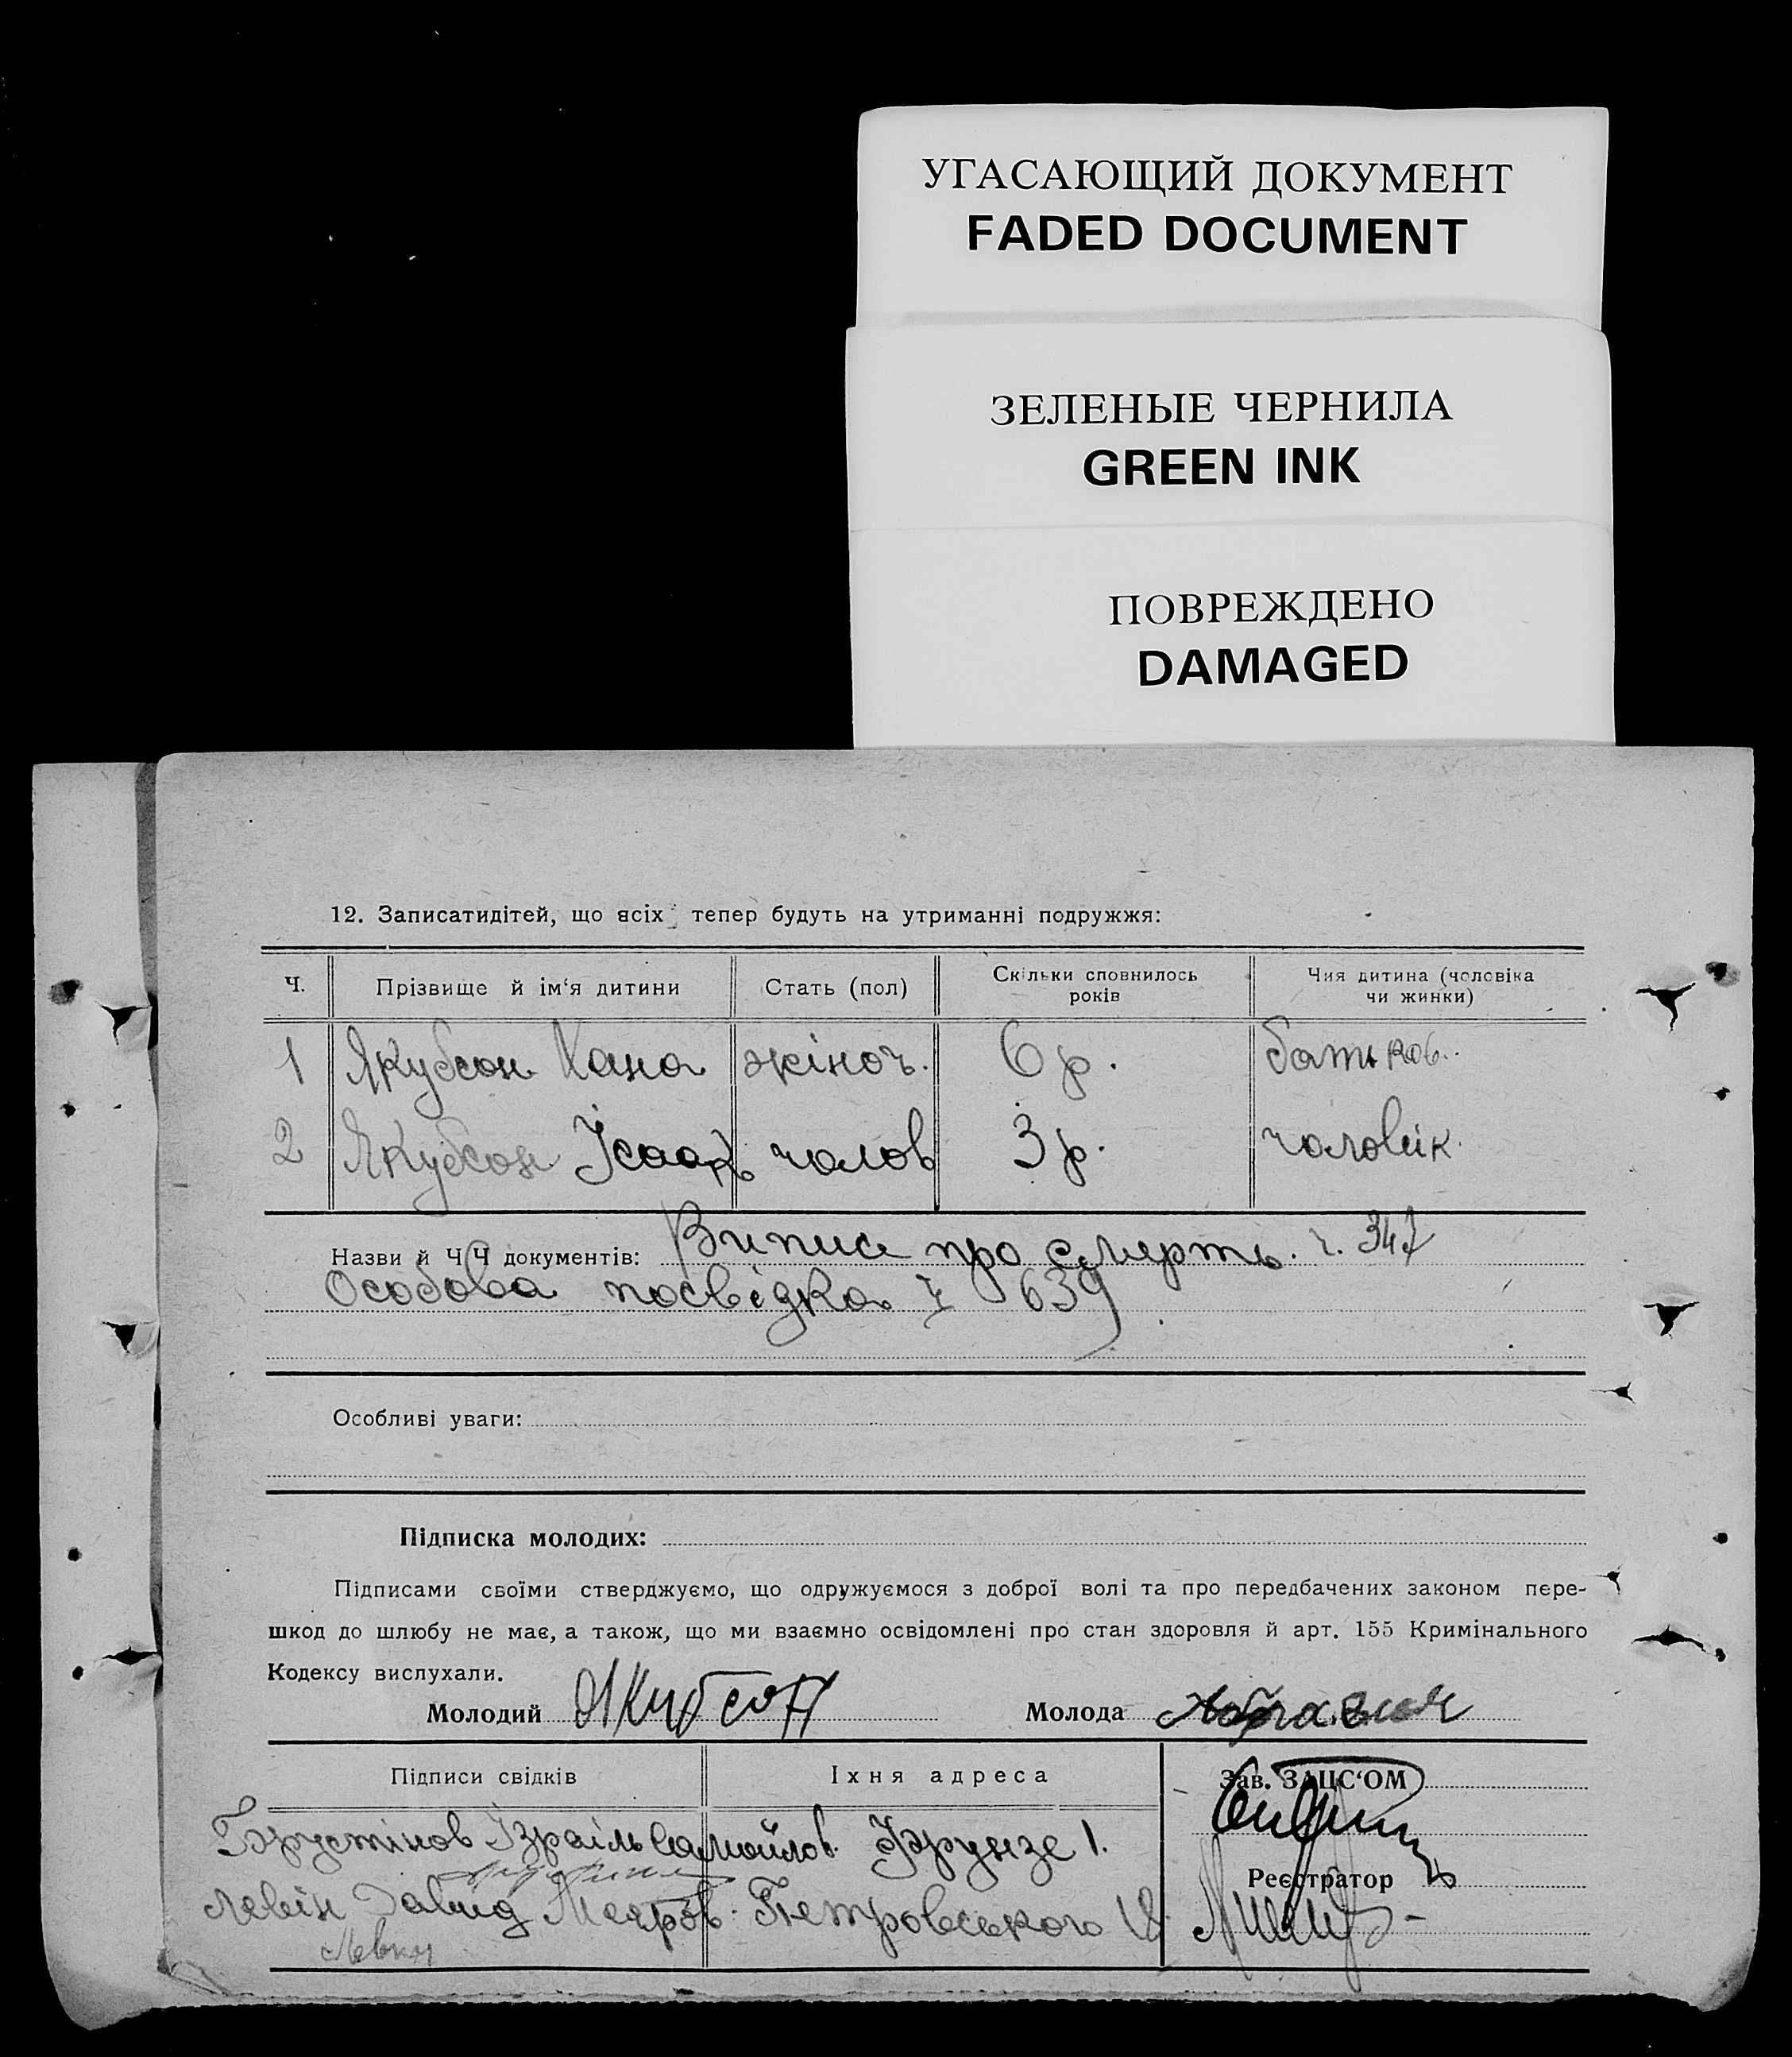 УГАСАЮЩИЙ ДОКУМЕНТ
FADED DOCUMENT
ЗЕЛЕНЫЕ ЧЕРНИЛА
GREEN INK
ПОВРЕЖДЕНО
DAMAGED
12. Записатидітей, що всіх тепер будуть на утриманні подружжя:
Ч. Прізвище й ім‘я дитини Стать (пол) Скільки сповнилось років Чия дитина (чоловіка чи жинки)
1 Якубсон Хана жіноч. 6 р. батьков.
2 Якубсон Ісаак чолов 3 р. чоловік.
Назви й ЧЧ документів: Випис про смерть. ч. 347
Особова посвідка ч 639
Особливі уваги:
Підписка молодих:
Підписами своїми стверджуємо, що одружуємося з доброї волі та про передбачених законом пере-
шкод до шлюбу не має, а також, що ми взаємно освідомлені про стан здоровля й арт. 155 Кримінального
Кодексу вислухали.
Молодий Якубсон Молода
Підписи свідків Їхня адреса Зав. ЗАЦС‘ОМ
Ізраіль Самойлов. Фрунзе 1.
Реєстратор
Левін Давид Меяров. Петровського 18.